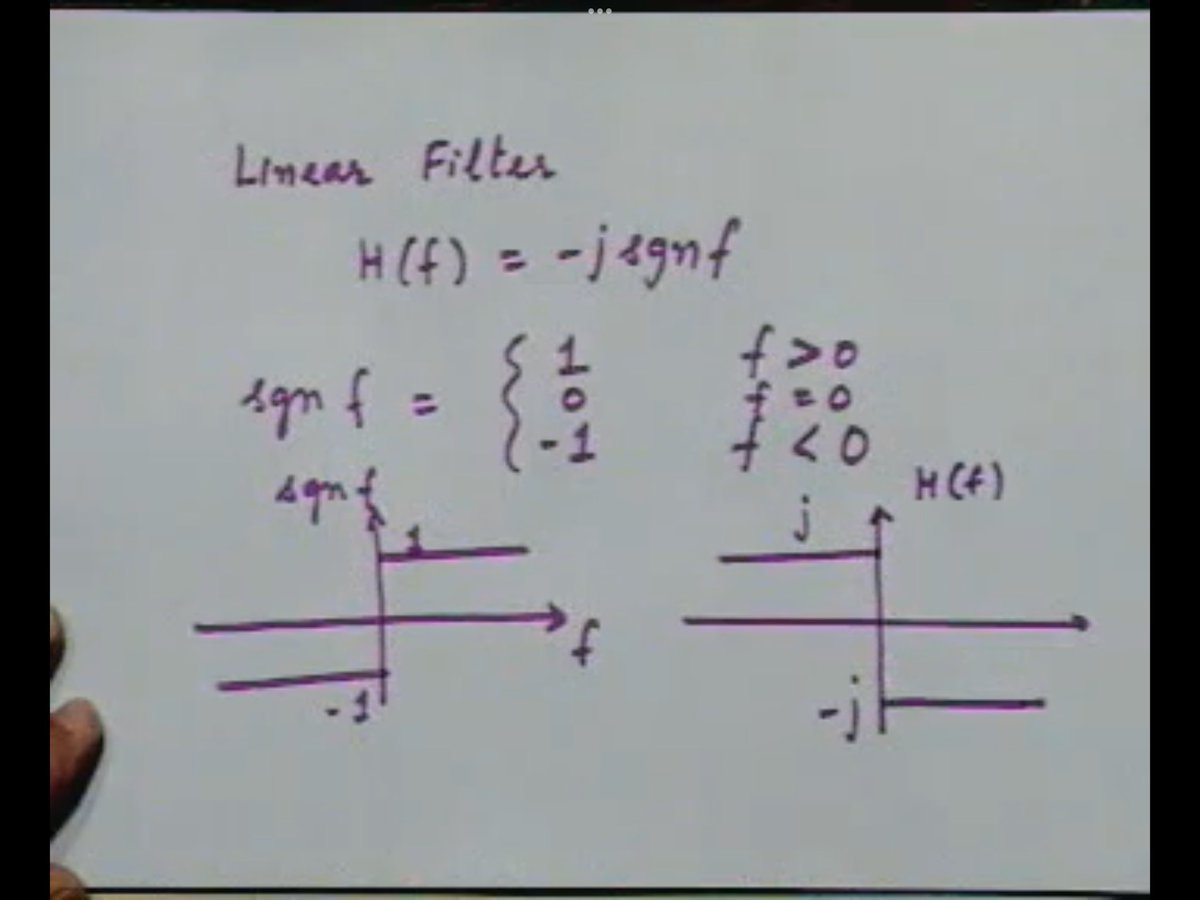 Linear Filter
H(f) = -j sgn f
sgn f = { 1 f > 0
0 f = 0
-1 f < 0
sgn f
H(f)
1
j
f
-1
-j